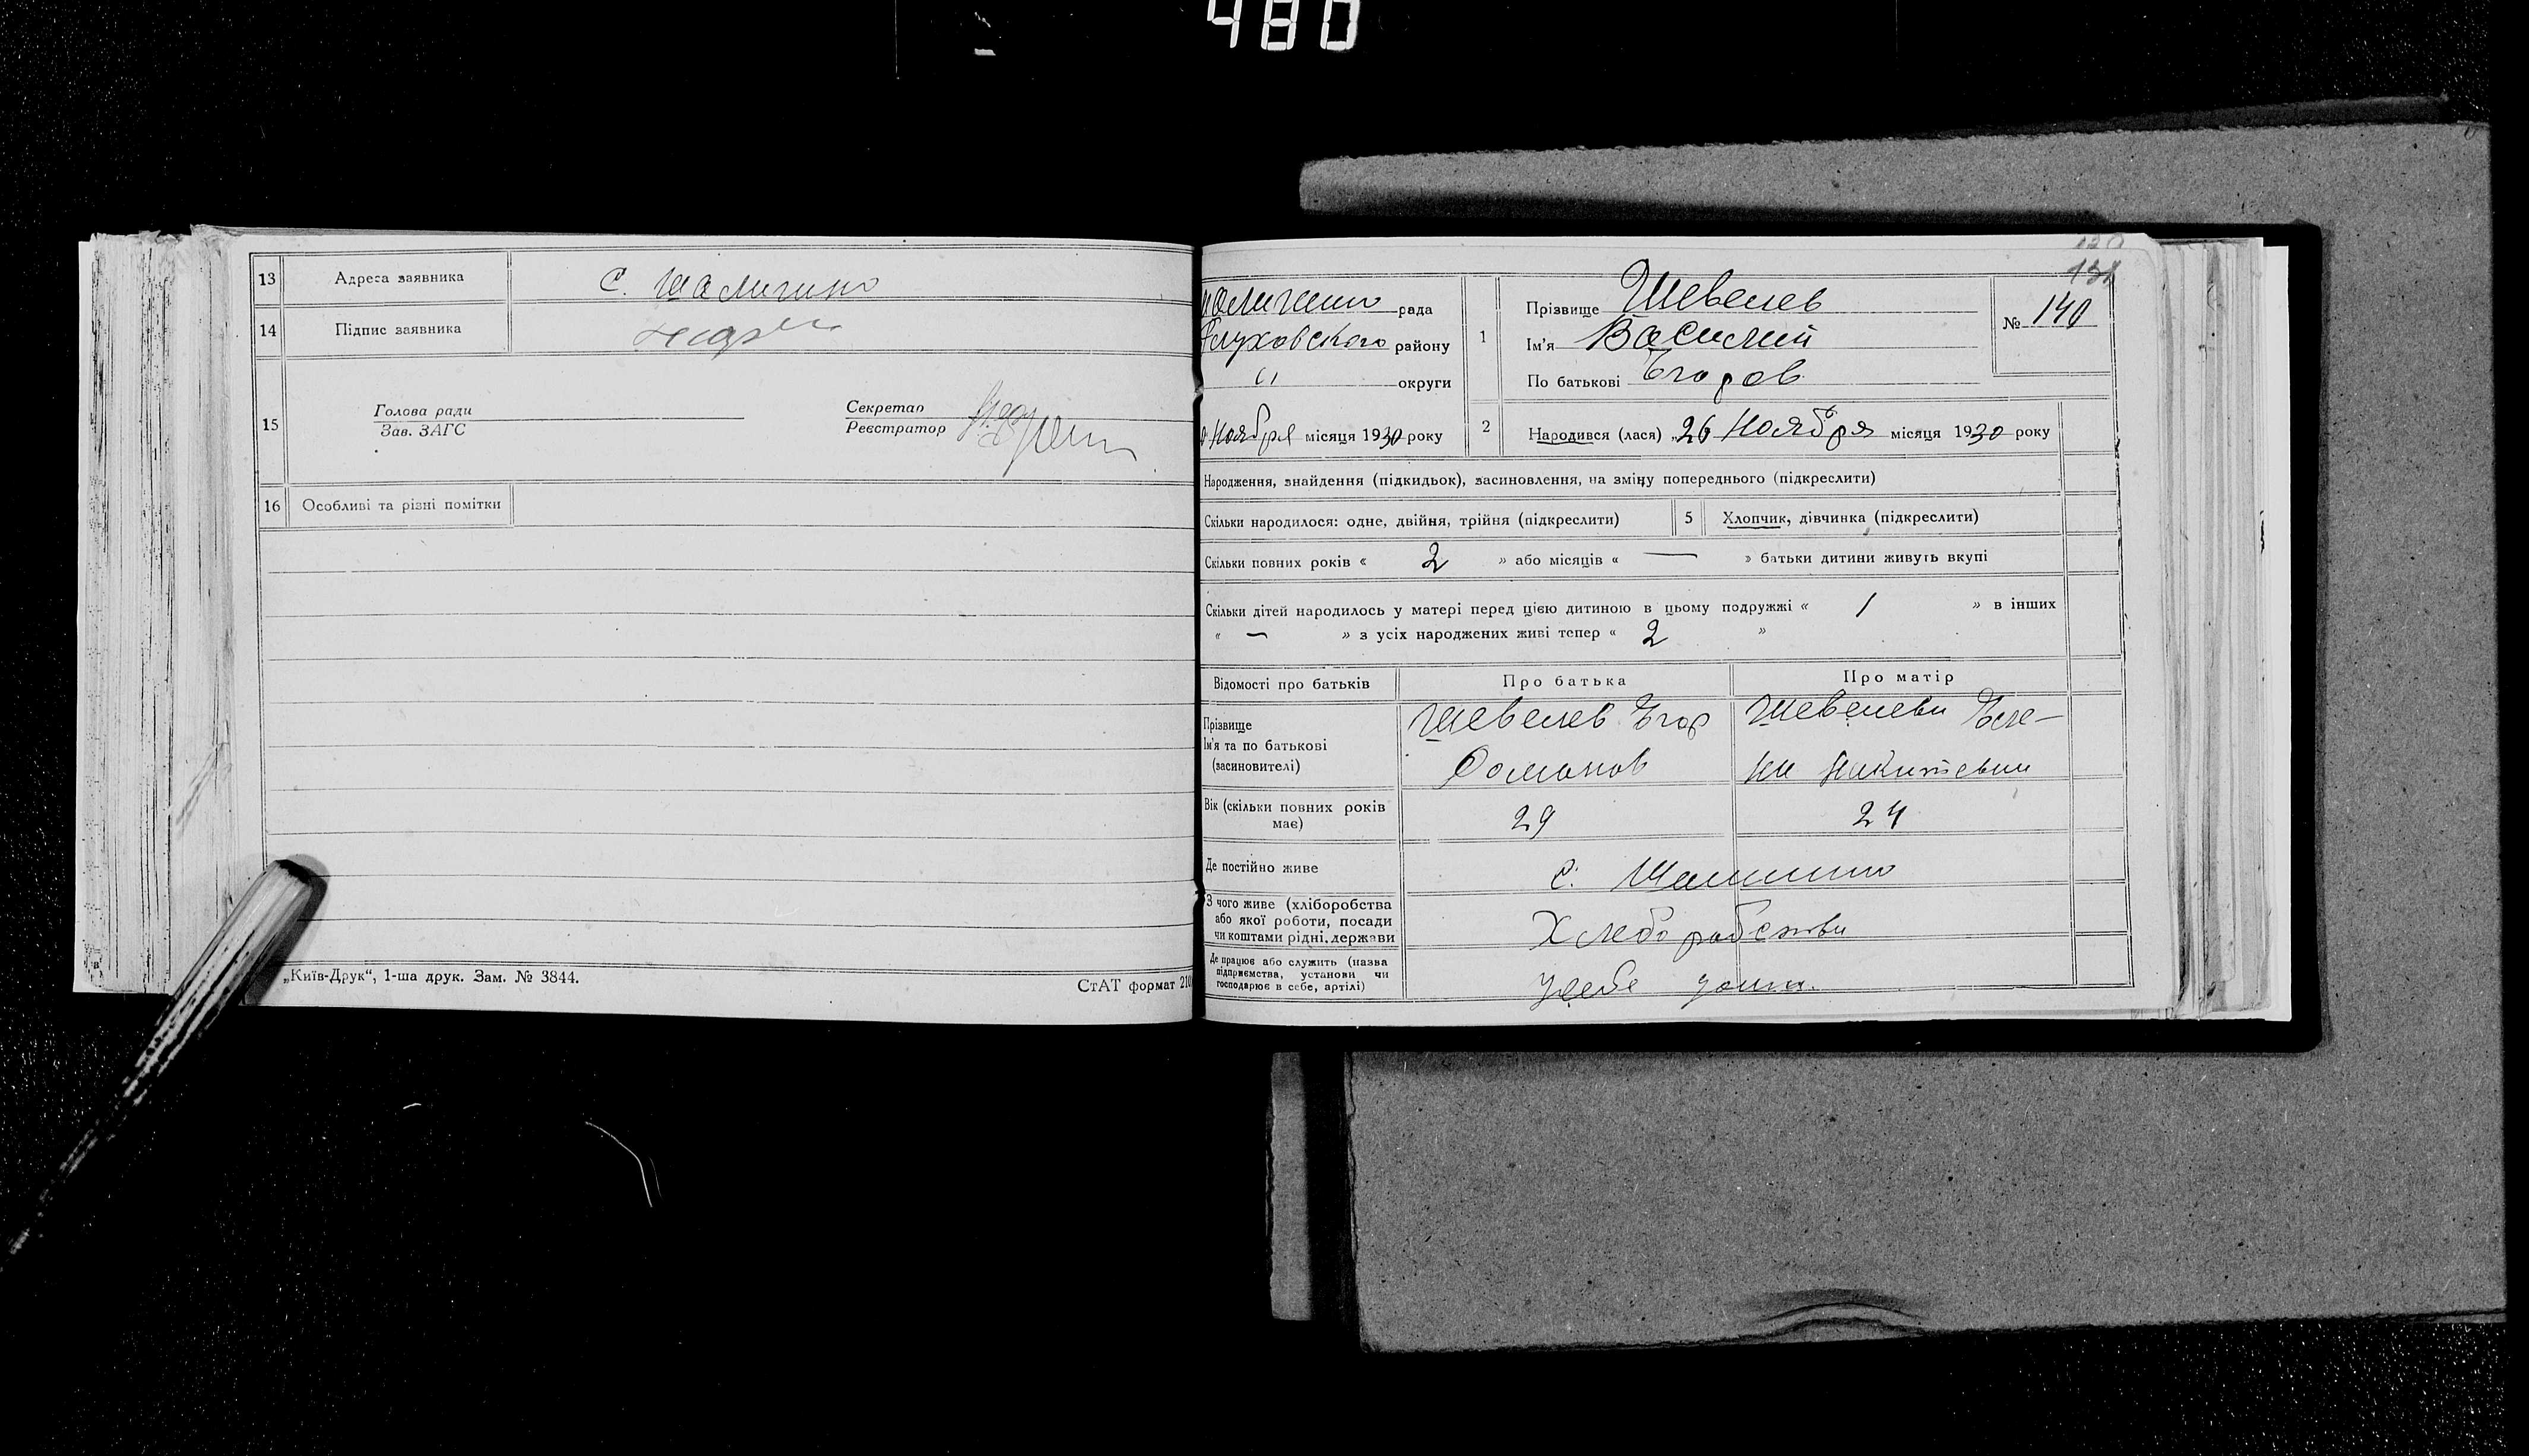 480
13 Адреса заявника с. Шалигино
14 Підпис заявника
15 Голова ради
Зав. ЗАГС
Секретар
Реєстратор
16 Особливі та різні помітки
„Київ-Друк“, 1-ша друк. Зам. № 3844.
СтАТ формат 210
131
рада
Глуховского району
" округи
Ноября місяця 1930 року
1 Прізвище Шевелев
Ім'я Василий
По батькові Егоров
№ 140
2 Народився (лася) „26 Ноября місяця 1930 року
Народження, знайдення (підкидьок), засиновлення, на зміну попереднього (підкреслити)
Скільки народилося: одне, двійня, трійня (підкреслити)
5 Хлопчик, дівчинка (підкреслити)
Скільки повних років « 2 » або місяців « — » батьки дитини живуть вкупі
Скільки дітей народилось у матері перед цією дитиною в цьому подружжі « 1 » в інших
« — » з усіх народжених живі тепер « 2 »
Відомості про батьків Про батька Про матір
Прізвище
Ім'я та по батькові
(засиновителі)
Шевелев Егор
Шевелева Еле-
на Никитовна
Вік (скільки повних років
має)
29 24
Де постійно живе с. Шалигино
З чого живе (хліборобства
або якої роботи, посади
чи коштами рідні, держави
Хлеборобства
Де працює або служить (назва
підприємства, установи чи
господарює в себе, артілі)
У себе дома.